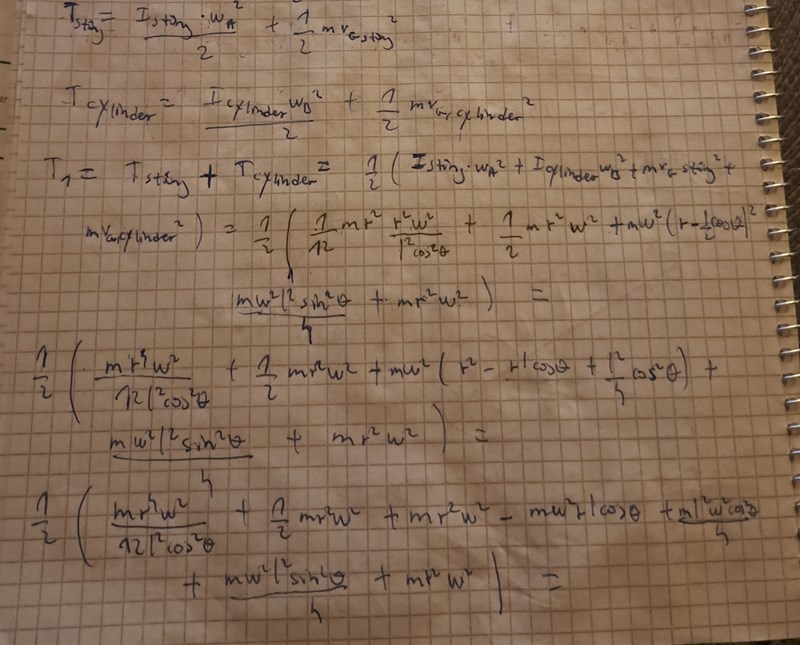 T_stang = I_stang·ω_A²/2 + 1/2 m v_G stang²
T_cylinder = I_cylinder ω_B²/2 + 1/2 m v_G,cylinder²
T_1 = T_stang + T_cylinder = 1/2 ( I_stang·ω_A² + I_cylinder ω_B² + m v_G stang² +
m v_G,cylinder² ) = 1/2 ( 1/12 m r² r²ω²/l²cos²θ + 1/2 m r² ω² + mω² (r - l/2 cosθ)²
mω²l² sin²θ/4 + m r² ω² ) =
1/2 ( m r⁴ ω²/12 l² cos²θ + 1/2 m r² ω² + mω² ( r² - r l cosθ + l²/4 cos²θ ) +
mω²l² sin²θ/4 + m r² ω² ) =
1/2 ( m r⁴ ω²/12 l² cos²θ + 1/2 m r² ω² + m r² ω² - mω² r l cosθ + m l² ω² cos²θ/4
+ mω²l² sin²θ/4 + m r² ω² ) =